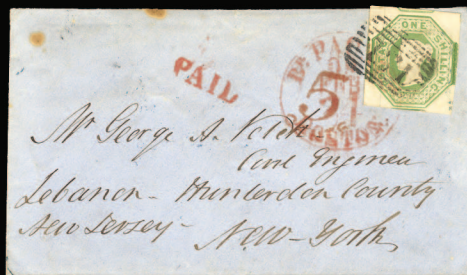 ONE SHILLING
Br. PA
FEB
51
BOSTON.
PAID
Mr George A. Veitch
Civil Engineer
Lebanon - Hunterdon County
New Jersey -
New-York